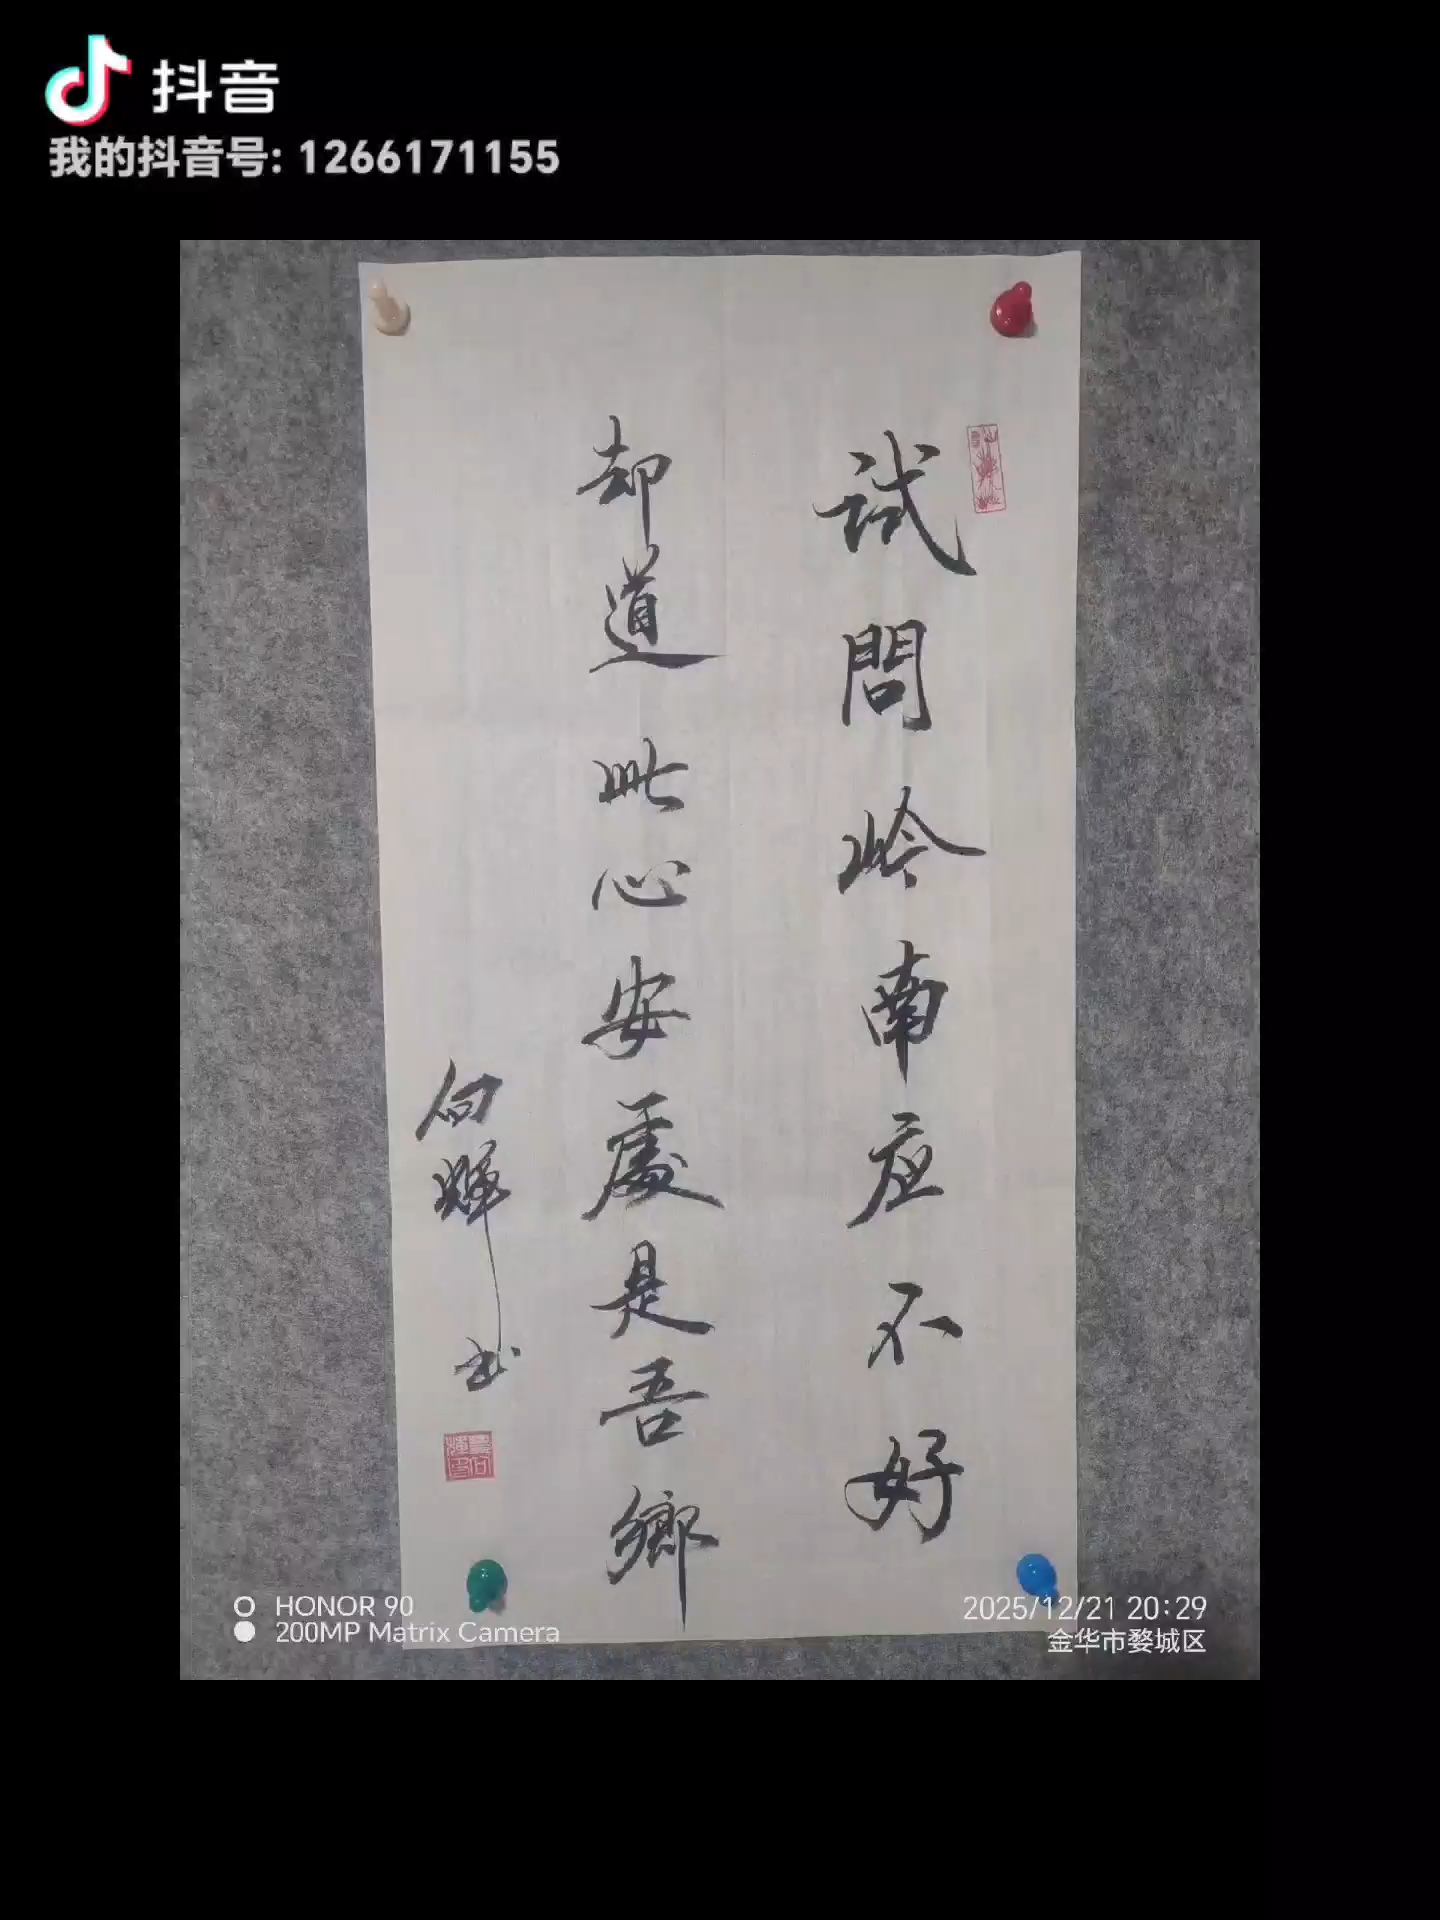 抖音
我的抖音号: 1266171155
试問岭南应不好
却道此心安處是吾鄉
向輝书
HONOR 90
200MP Matrix Camera
2025/12/21 20:29
金华市婺城区